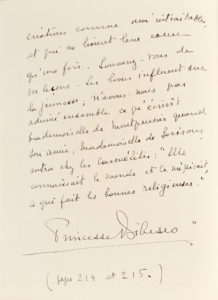 créations comme moi intraitables,
et qui ne livrent leur cœur
qu'une fois. Souvenez-vous de
ses leçons. Les livres influent sur
la jeunesse. N'avons-nous pas
admiré ensemble ce qu'écrivit
mademoiselle de Montpensier quand
son amie, mademoiselle de Saujon
entra chez les carmélites : "Elle
connaissait le monde et le méprisait
ce qui fait les bonnes religieuses."
Princesse Bibesco
(pages 214 et 215.)